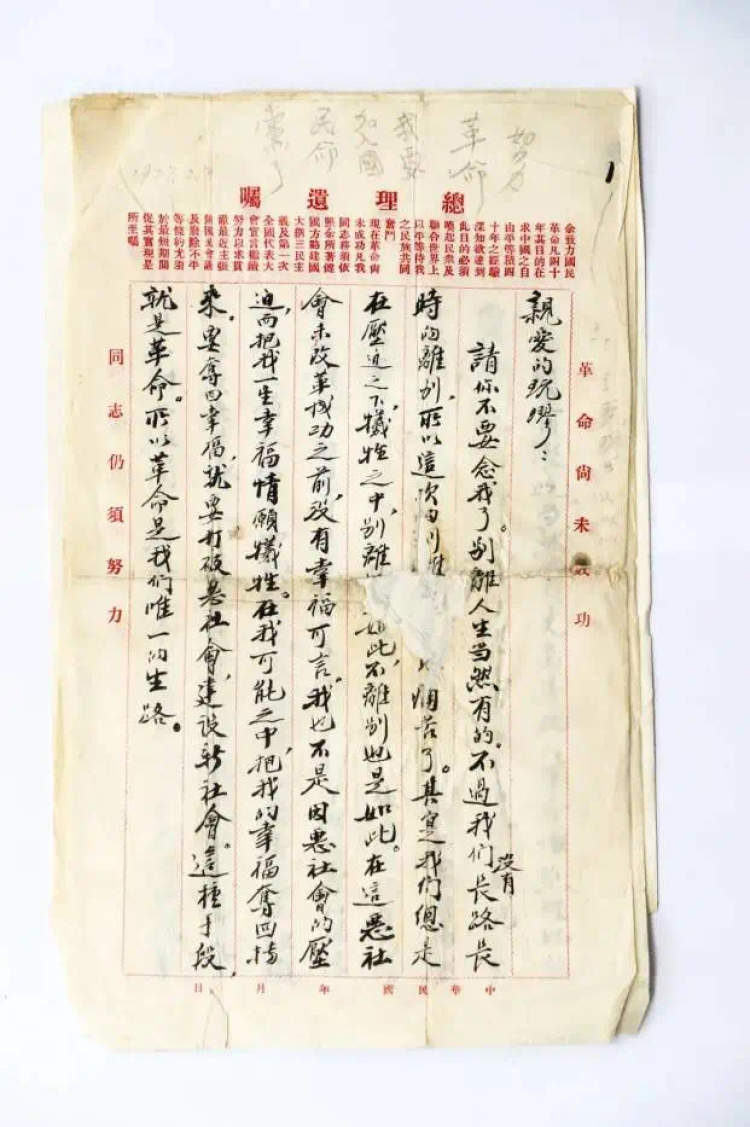 努力
革命
我要
加入國
民命
黨了
總理遺囑
余致力國民
革命凡四十
年其目的在
求中國之自
由平等積四
十年之經驗
深知欲達到
此目的必須
喚起民眾及
聯合世界上
以平等待我
之民族共同
奮鬥
現在革命尚
未成功凡我
同志務須依
照余所著建
國方略建國
大綱三民主
義及第一次
全國代表大
會宣言繼續
努力以求貫
徹最近主張
開國民會議
及廢除不平
等條約尤須
於最短期間
促其實現是
所至囑
革命尚未成功
親愛的玩璆：
請你不要念我了。别離人生當然有的。不過我们没有長路長
時的離别，所以這次的 苦了。其寔我们總是
在壓迫之下，犧牲之中，别離 如此，不離别也是如此。在這惡社
會未改革成功之前，没有幸福可言，我也不是因惡社會的壓
迫而把我一生幸福情願犧牲。在我可能之中，把我的幸福奪回轉
來。要奪回幸福，就要打破惡社會，建设新社會。這種手段，
就是革命。所以革命是我们唯一的生路。
同志仍須努力
中華民國 年 月 日